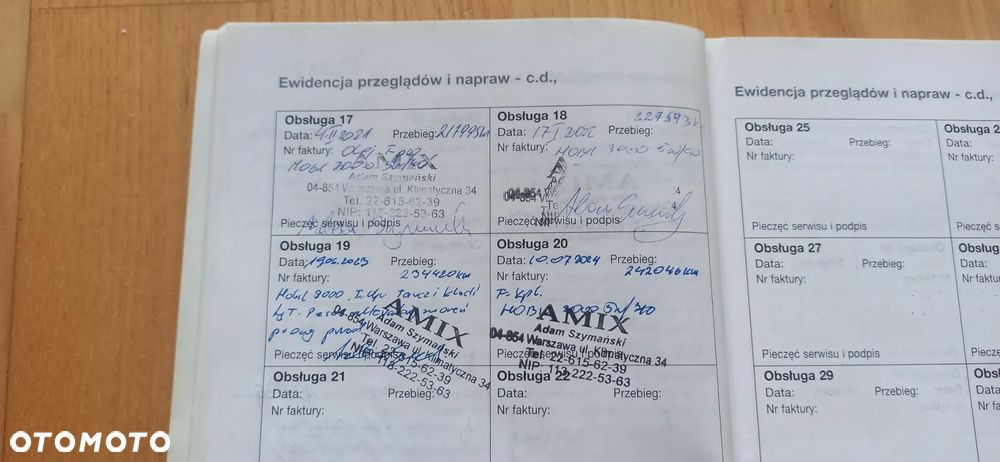 Ewidencja przeglądów i napraw - c.d.,
Obsługa 17
Data: 2021 Przebieg: 217995km
Nr faktury: Olej
Mobil 2000
AMIX
Adam Szymański
04-854 Warszawa ul. Klimatyczna 34
Tel. 22-615-62-39
NIP: 113-222-53-63
Pieczęć serwisu i podpis
Obsługa 18
327593km
Data: 17 I Przebieg:
Nr faktury: Mobil 3000 5W/40
04-854
Pieczęć serwisu i podpis
Obsługa 19
Data: 19.06.2023 Przebieg:
Nr faktury: 234420km
Mobil 3000
AMIX
Adam Szymański
04-854 Warszawa ul. Klimatyczna 34
Tel. 22-615-62-39
NIP: 113-222-53-63
Pieczęć serwisu i podpis
Obsługa 20
Data: 10.07.2024 Przebieg:
Nr faktury: 242046km
F. kpl.
AMIX
Adam Szymański
04-854 Warszawa ul. Klimatyczna 34
Pieczęć serwisu i podpis
Tel. 22-615-62-39
NIP: 113-222-53-63
Obsługa 21
Data: Przebieg:
Nr faktury:
Obsługa 22
Data: Przebieg:
Nr faktury:
Ewidencja przeglądów i napraw - c.d.,
Obsługa 25
Data: Przebieg:
Nr faktury:
Pieczęć serwisu i podpis
Obsługa 2
Data:
Nr faktury:
Pieczęć se
Obsługa 27
Data: Przebieg:
Nr faktury:
Pieczęć serwisu i podpis
Obsługa
Data:
Nr faktury
Pieczęć
Obsługa 29
Data: Przebieg:
Nr faktury:
Data:
Nr fa
OTOMOTO